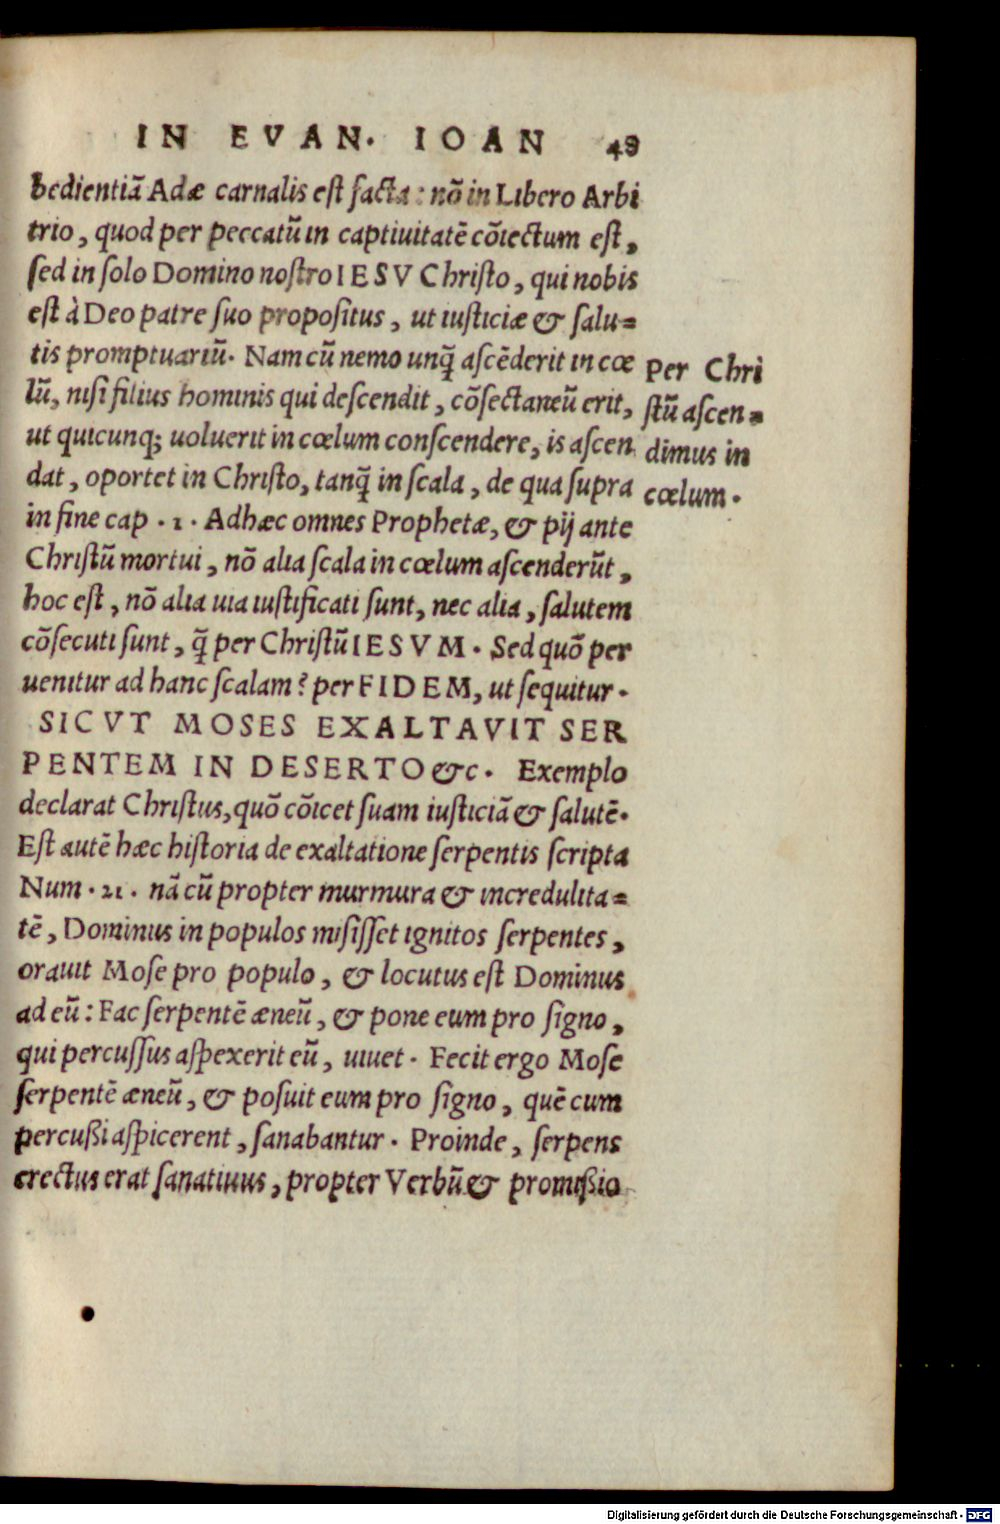 IN EVAN. IOAN 48
bedientiã Adæ carnalis est facta: nõ in Libero Arbi
trio, quod per peccatũ in captiuitatẽ cõiectum est,
sed in solo Domino nostro IESV Christo, qui nobis
est à Deo patre suo propositus, ut iusticiæ & salu=
tis promptuariũ. Nam cũ nemo unq̃ ascẽderit in cœ
lũ, nisi filius hominis qui descendit, cõsectaneũ erit,
ut quicunq; uoluerit in cœlum conscendere, is ascen
dat, oportet in Christo, tanq̃ in scala, de qua supra
in fine cap. 1. Adhæc omnes Prophetæ, & pij ante
Christũ mortui, nõ alia scala in cœlum ascenderũt,
hoc est, nõ alia uia iustificati sunt, nec alia, salutem
cõsecuti sunt, q̃ per Christũ IESVM. Sed quõ per
uenitur ad hanc scalam? per FIDEM, ut sequitur.
SICVT MOSES EXALTAVIT SER
PENTEM IN DESERTO &c. Exemplo
declarat Christus, quõ cõicet suam iusticiã & salutẽ.
Est autẽ hæc historia de exaltatione serpentis scripta
Num. 21. nã cũ propter murmura & incredulita=
tẽ, Dominus in populos misisset ignitos serpentes,
orauit Mose pro populo, & locutus est Dominus
ad eũ: Fac serpentẽ æneũ, & pone eum pro signo,
qui percussus aspexerit eũ, uiuet. Fecit ergo Mose
serpentẽ æneũ, & posuit eum pro signo, quẽ cum
percußi aspicerent, sanabantur. Proinde, serpens
erectus erat sanatiuus, propter Verbũ & promißio
Per Chri
stũ ascen=
dimus in
cœlum.
Digitalisierung gefördert durch die Deutsche Forschungsgemeinschaft - DFG